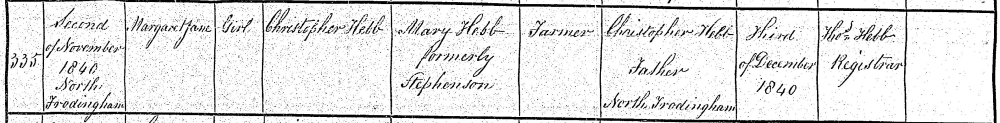 335
Second
of November
1840
North
Frodingham
Margaret Jane
Girl
Christopher Hebb
Mary Hebb
formerly
Stephenson
Farmer
Christopher Hebb
Father
North Frodingham
Third
of December
1840
Thos. Hebb
Registrar